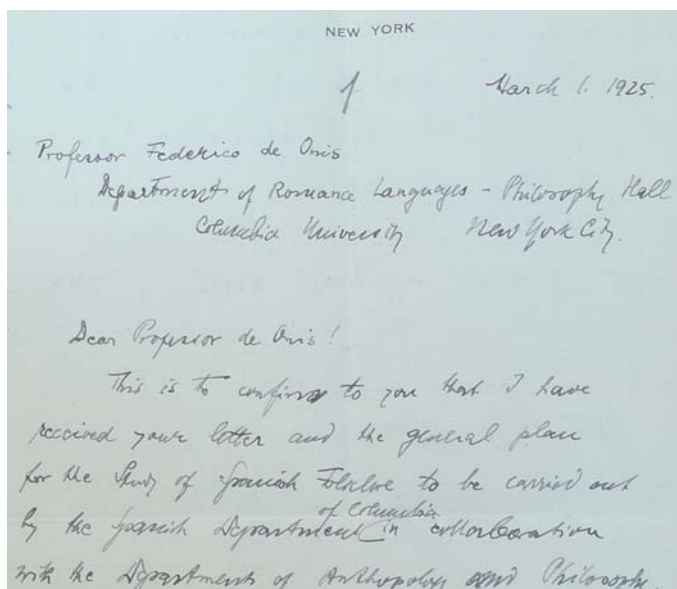 NEW YORK
1
March 1. 1925.
Professor Federico de Onis
Department of Romance Languages - Philosophy Hall
Columbia University New York City.
Dear Professor de Onis!
This is to confirm to you that I have
received your letter and the general plan
for the Study of Spanish Folklore to be carried out
of Columbia
by the Spanish Department in collaboration
with the Departments of Anthropology and Philosophy.